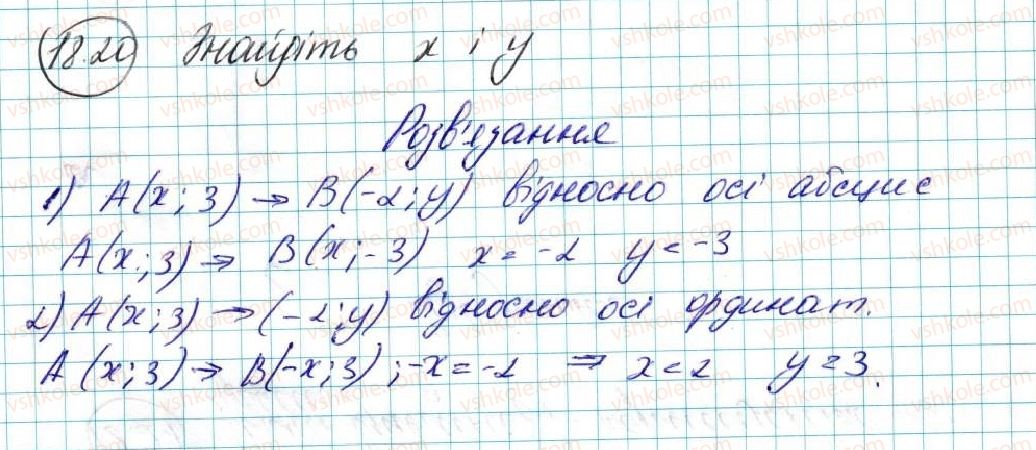 18.20 Знайдіть x і y
Розв'язання
1) A(x; 3) → B(-2; y) відносно осі абсцис
A(x; 3) → B(x; -3) x = -2 y = -3
2) A(x; 3) → (-2; y) відносно осі ординат.
A(x; 3) → B(-x; 3); -x = -2 ⇒ x = 2 y = 3.